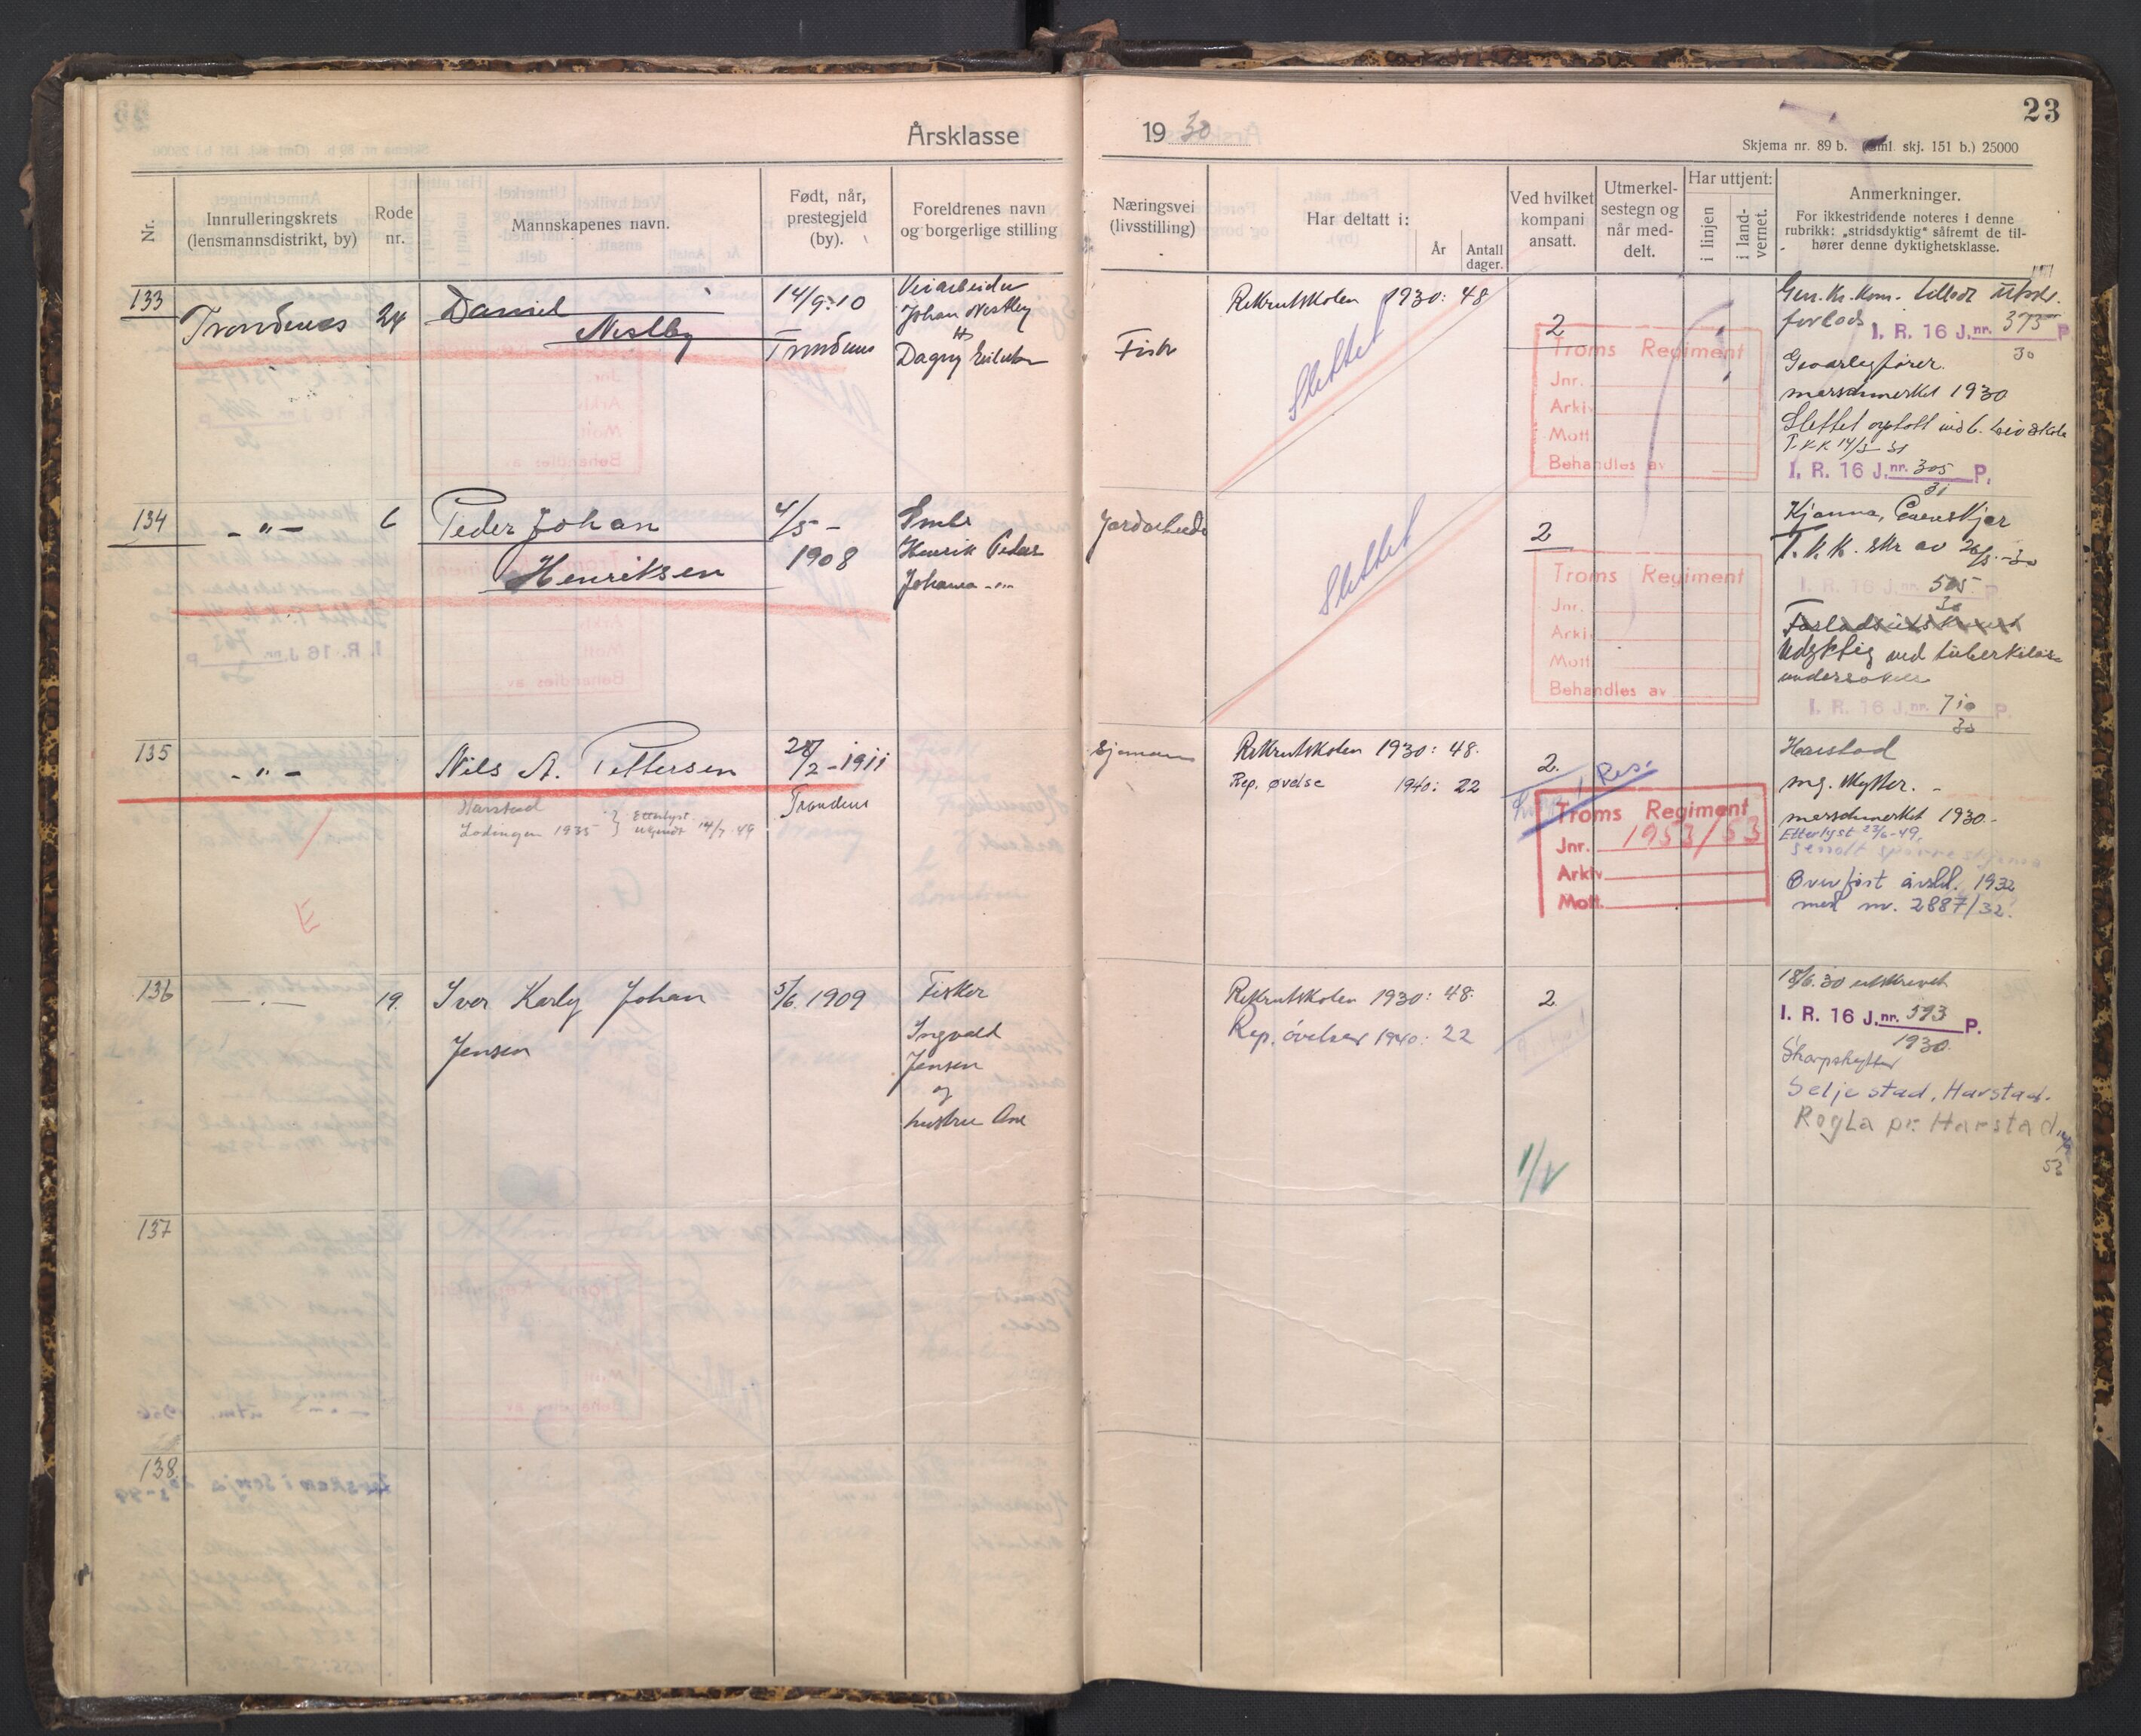 Årsklasse 1930
23
Skjema nr. 89 b. (Gml. skj. 151 b.) 25000
Nr.
Innrulleringskrets
(lensmannsdistrikt, by)
Rode
nr.
Mannskapenes navn.
Født, når,
prestegjeld
(by).
Foreldrenes navn
og borgerlige stilling
Næringsvei
(livsstilling)
Har deltatt i:
År
Antall
dager.
Ved hvilket
kompani
ansatt.
Utmerkel-
sestegn og
når med-
delt.
Har uttjent:
i linjen
i land-
vernet.
Anmerkninger.
For ikkestridende noteres i denne
rubrikk: „stridsdyktig" såfremt de til-
hører denne dyktighetsklasse.
133
Trondenes
24
Daniel
Nestby
14/9.10
Trondenes
Veiarbeider
Johan Nestby
Dagny
Fisk
Rekrutskolen 1930: 48
Slettet
2
Troms Regiment
Jnr.
Arkiv
Mott.
Behandles av
I. R. 16 J. nr. 375 P
30
Geværlagfører.
marschmerket 1930
Slettet
T.K.K 14/3 31
I. R. 16 J. nr. 305 P.
31
134
- " -
6
Peder Johan
Henriksen
4/5 -
1908
Smbr
Henrik Peders
Johanna - " -
Jordarbeide
Slettet
2
Troms Regiment
Jnr.
Arkiv
Mott.
Behandles av
Kjønna, Evenskjer
T.K.K. skr av 26/5-30
I. R. 16 J. nr. 505 P
30
Udyktig ved tuberkulose
undersøkelse
I. R. 16 J. nr. 710 P.
30
135
- " -
Nils A. Pettersen
Harstad
Lødingen 1935 } Etterlyst
14/7-49
2-1911
Trondenes
Sjømann
Rekrutskolen 1930: 48.
Rep. øvelse 1940: 22
2.
Res.
Troms Regiment
Jnr. 1953/53
Arkiv
Mott.
Harstad
mg. skytter. -
marschmerket 1930.-
Etterlyst 23/6-49.
sendt spørreskjema
Overført årskl. 1932
med nr. 2887/32.
E
136
— " —
19.
Iver Karly Johan
Jensen
5/6.1909
Fisker
Ingvald
Jensen
og
hustru Ane
Rekrutskolen 1930: 48.
Rep. øvelser 1940: 22
2
18/6.30 utskrevet
I. R. 16 J. nr. 593 P.
1930.
Skarpskytter
Seljestad, Harstad.
Rogla pr. Harstad
53
137
138